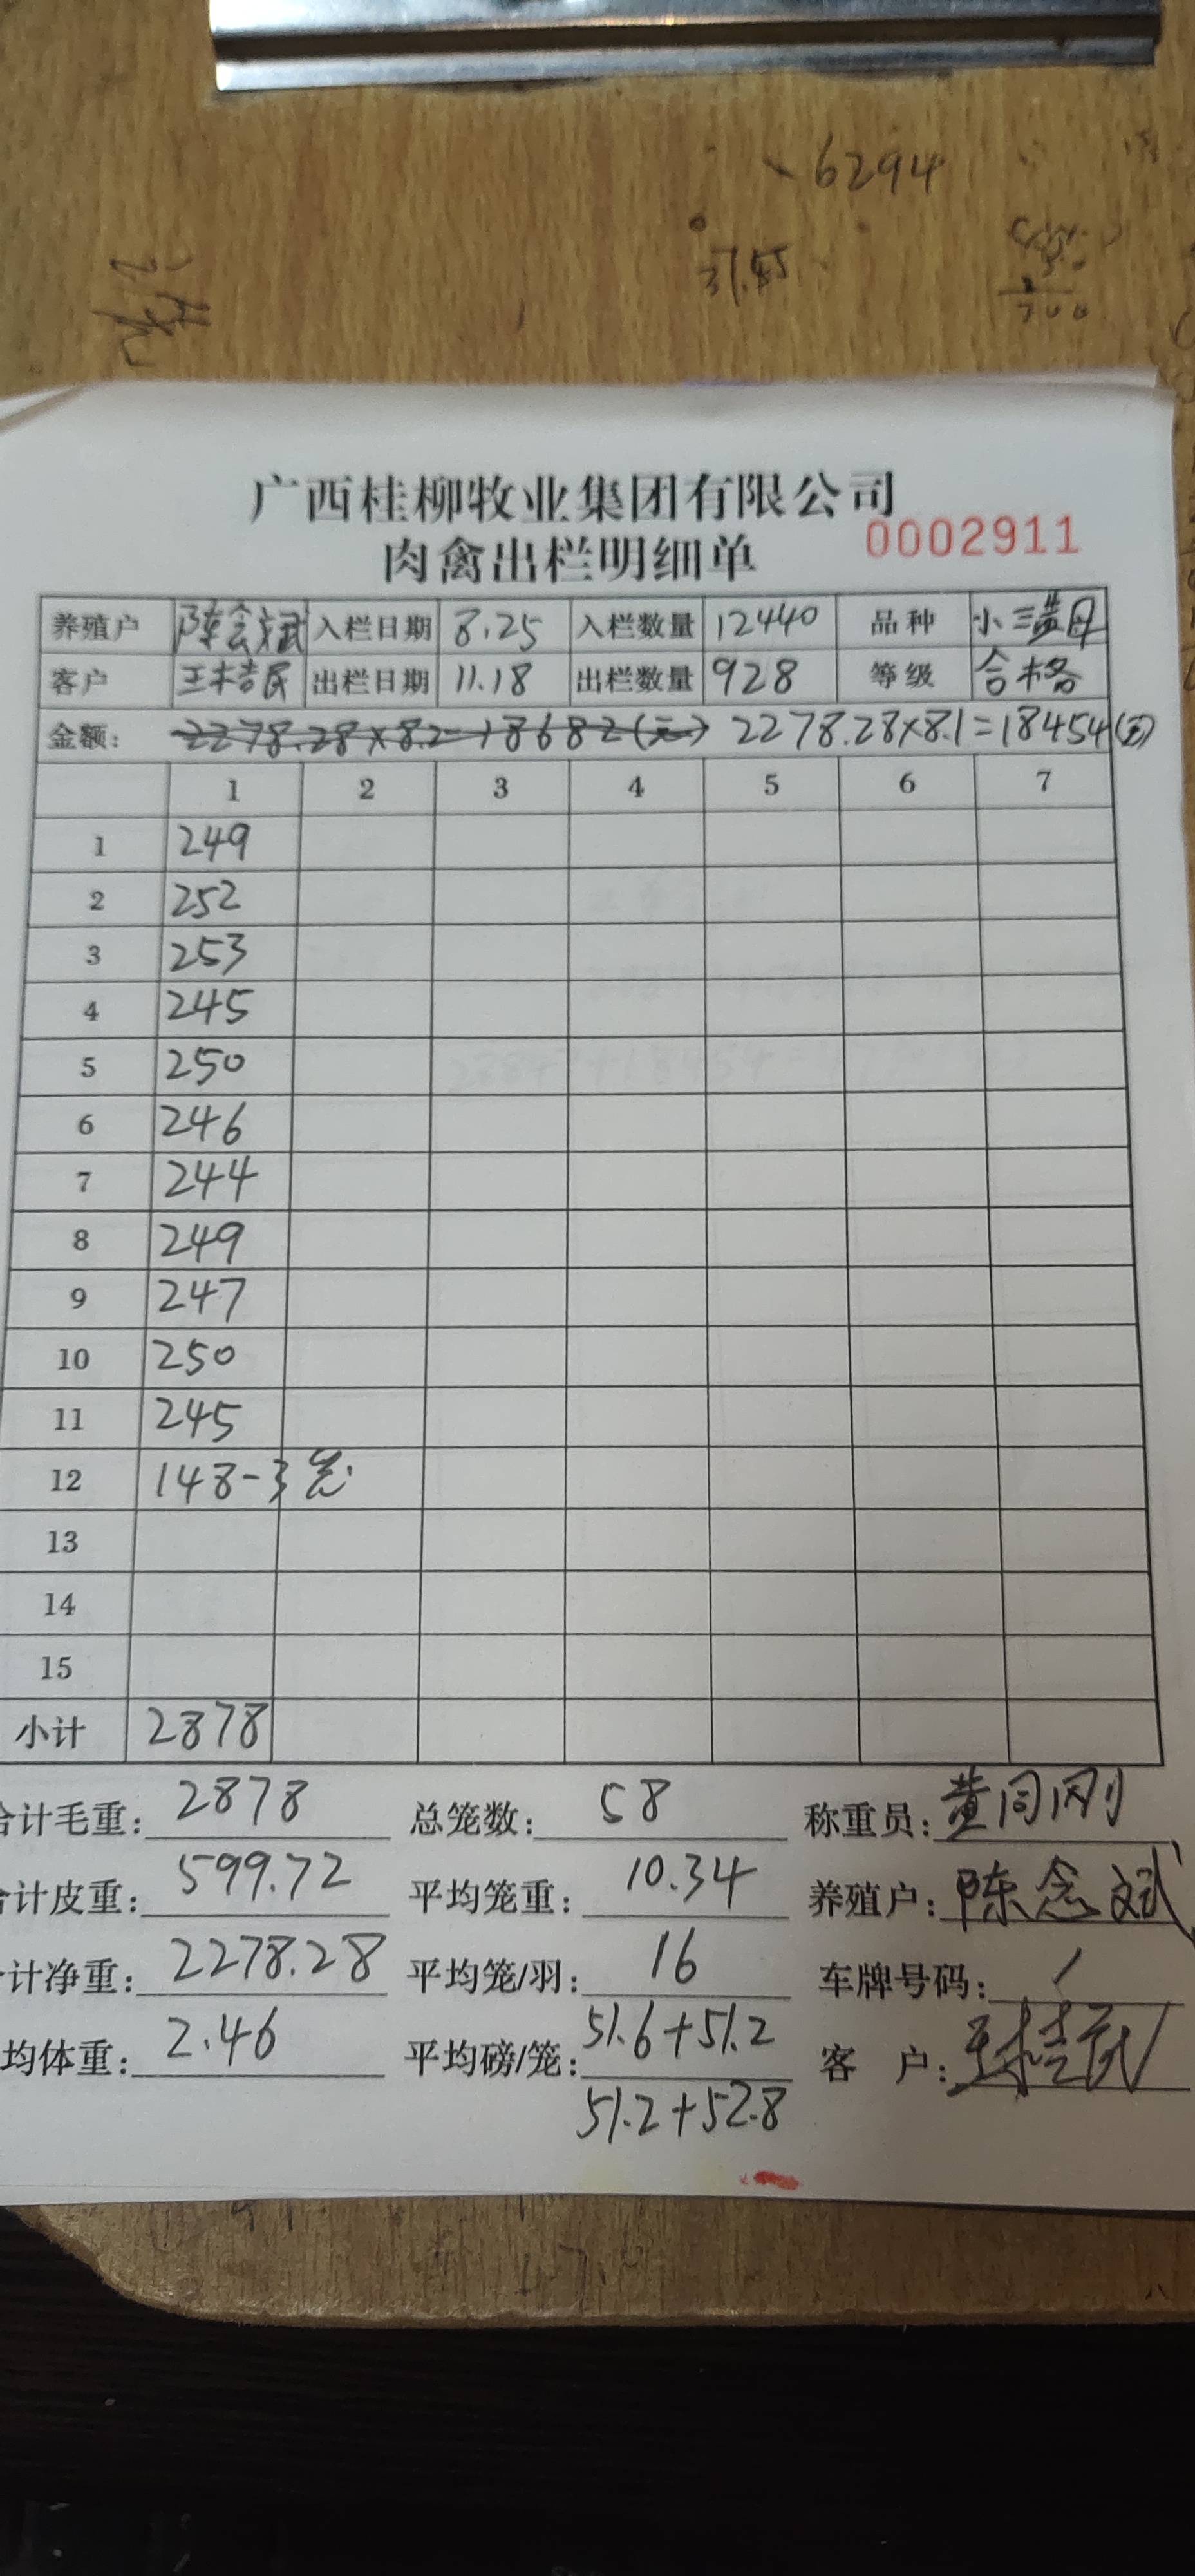 6294
31.45
700
广西桂柳牧业集团有限公司
肉禽出栏明细单 0002911
养殖户 陈念斌 入栏日期 8.25 入栏数量 12440 品种 小三黄母
客户 王桂民 出栏日期 11.18 出栏数量 928 等级 合格
金额: 2278.28×8.2=18682(元) 2278.28×8.1=18454(元)
1 2 3 4 5 6 7
1 249
2 252
3 253
4 245
5 250
6 246
7 244
8 249
9 247
10 250
11 245
12 148-3笼
13
14
15
小计 2878
合计毛重: 2878 总笼数: 58 称重员: 黄同刚
计皮重: 599.72 平均笼重: 10.34 养殖户: 陈念斌
计净重: 2278.28 平均笼/羽: 16 车牌号码: /
均体重: 2.46 平均磅/笼: 51.6+51.2 客户: 王桂民
51.2+52.8